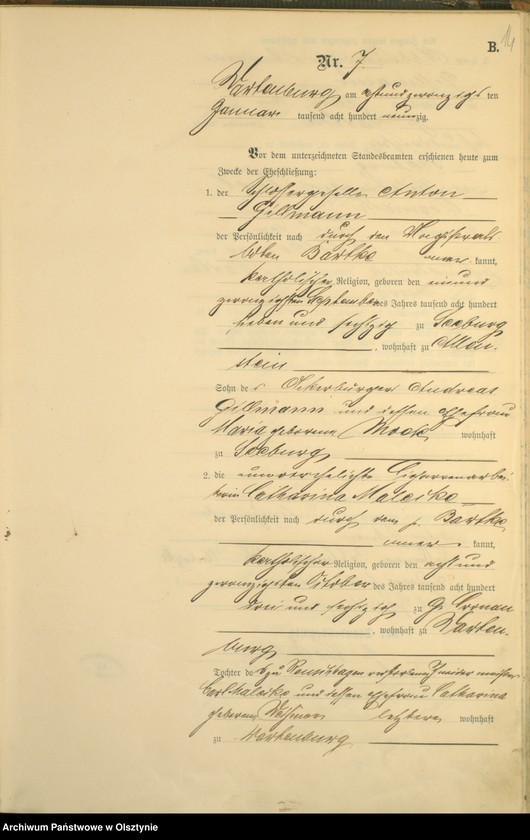 14
B.
Nr. 7
Wartenburg am achtundzwanzigsten
Januar tausend acht hundert neunzig.
Vor dem unterzeichneten Standesbeamten erschienen heute zum
Zwecke der Eheschließung:
1. der Schlossergeselle Anton
Gillmann
der Persönlichkeit nach durch den Magistrats
boten Bartke kannt,
katholischer Religion, geboren den neunund
zwanzigsten September des Jahres tausend acht hundert
sieben und sechzig zu Seeburg
, wohnhaft zu Allen-
stein
Sohn des Ackerbürger Andreas
Gillmann und dessen Ehefrau
Maria geborene wohnhaft
zu Seeburg
2. die unverehelichte Cigarrenarbei-
terin Catharina Maleike
der Persönlichkeit nach durch den p. Bartke
kannt,
katholischer Religion, geboren den achtund
zwanzigsten October des Jahres tausend acht hundert
drei und sechzig zu G. Cronau
, wohnhaft zu Warten-
burg
Tochter des zu verstorbenen
Maleike und dessen Ehefrau Catharina
geborene letztere wohnhaft
zu Wartenburg
Archiwum Państwowe w Olsztynie